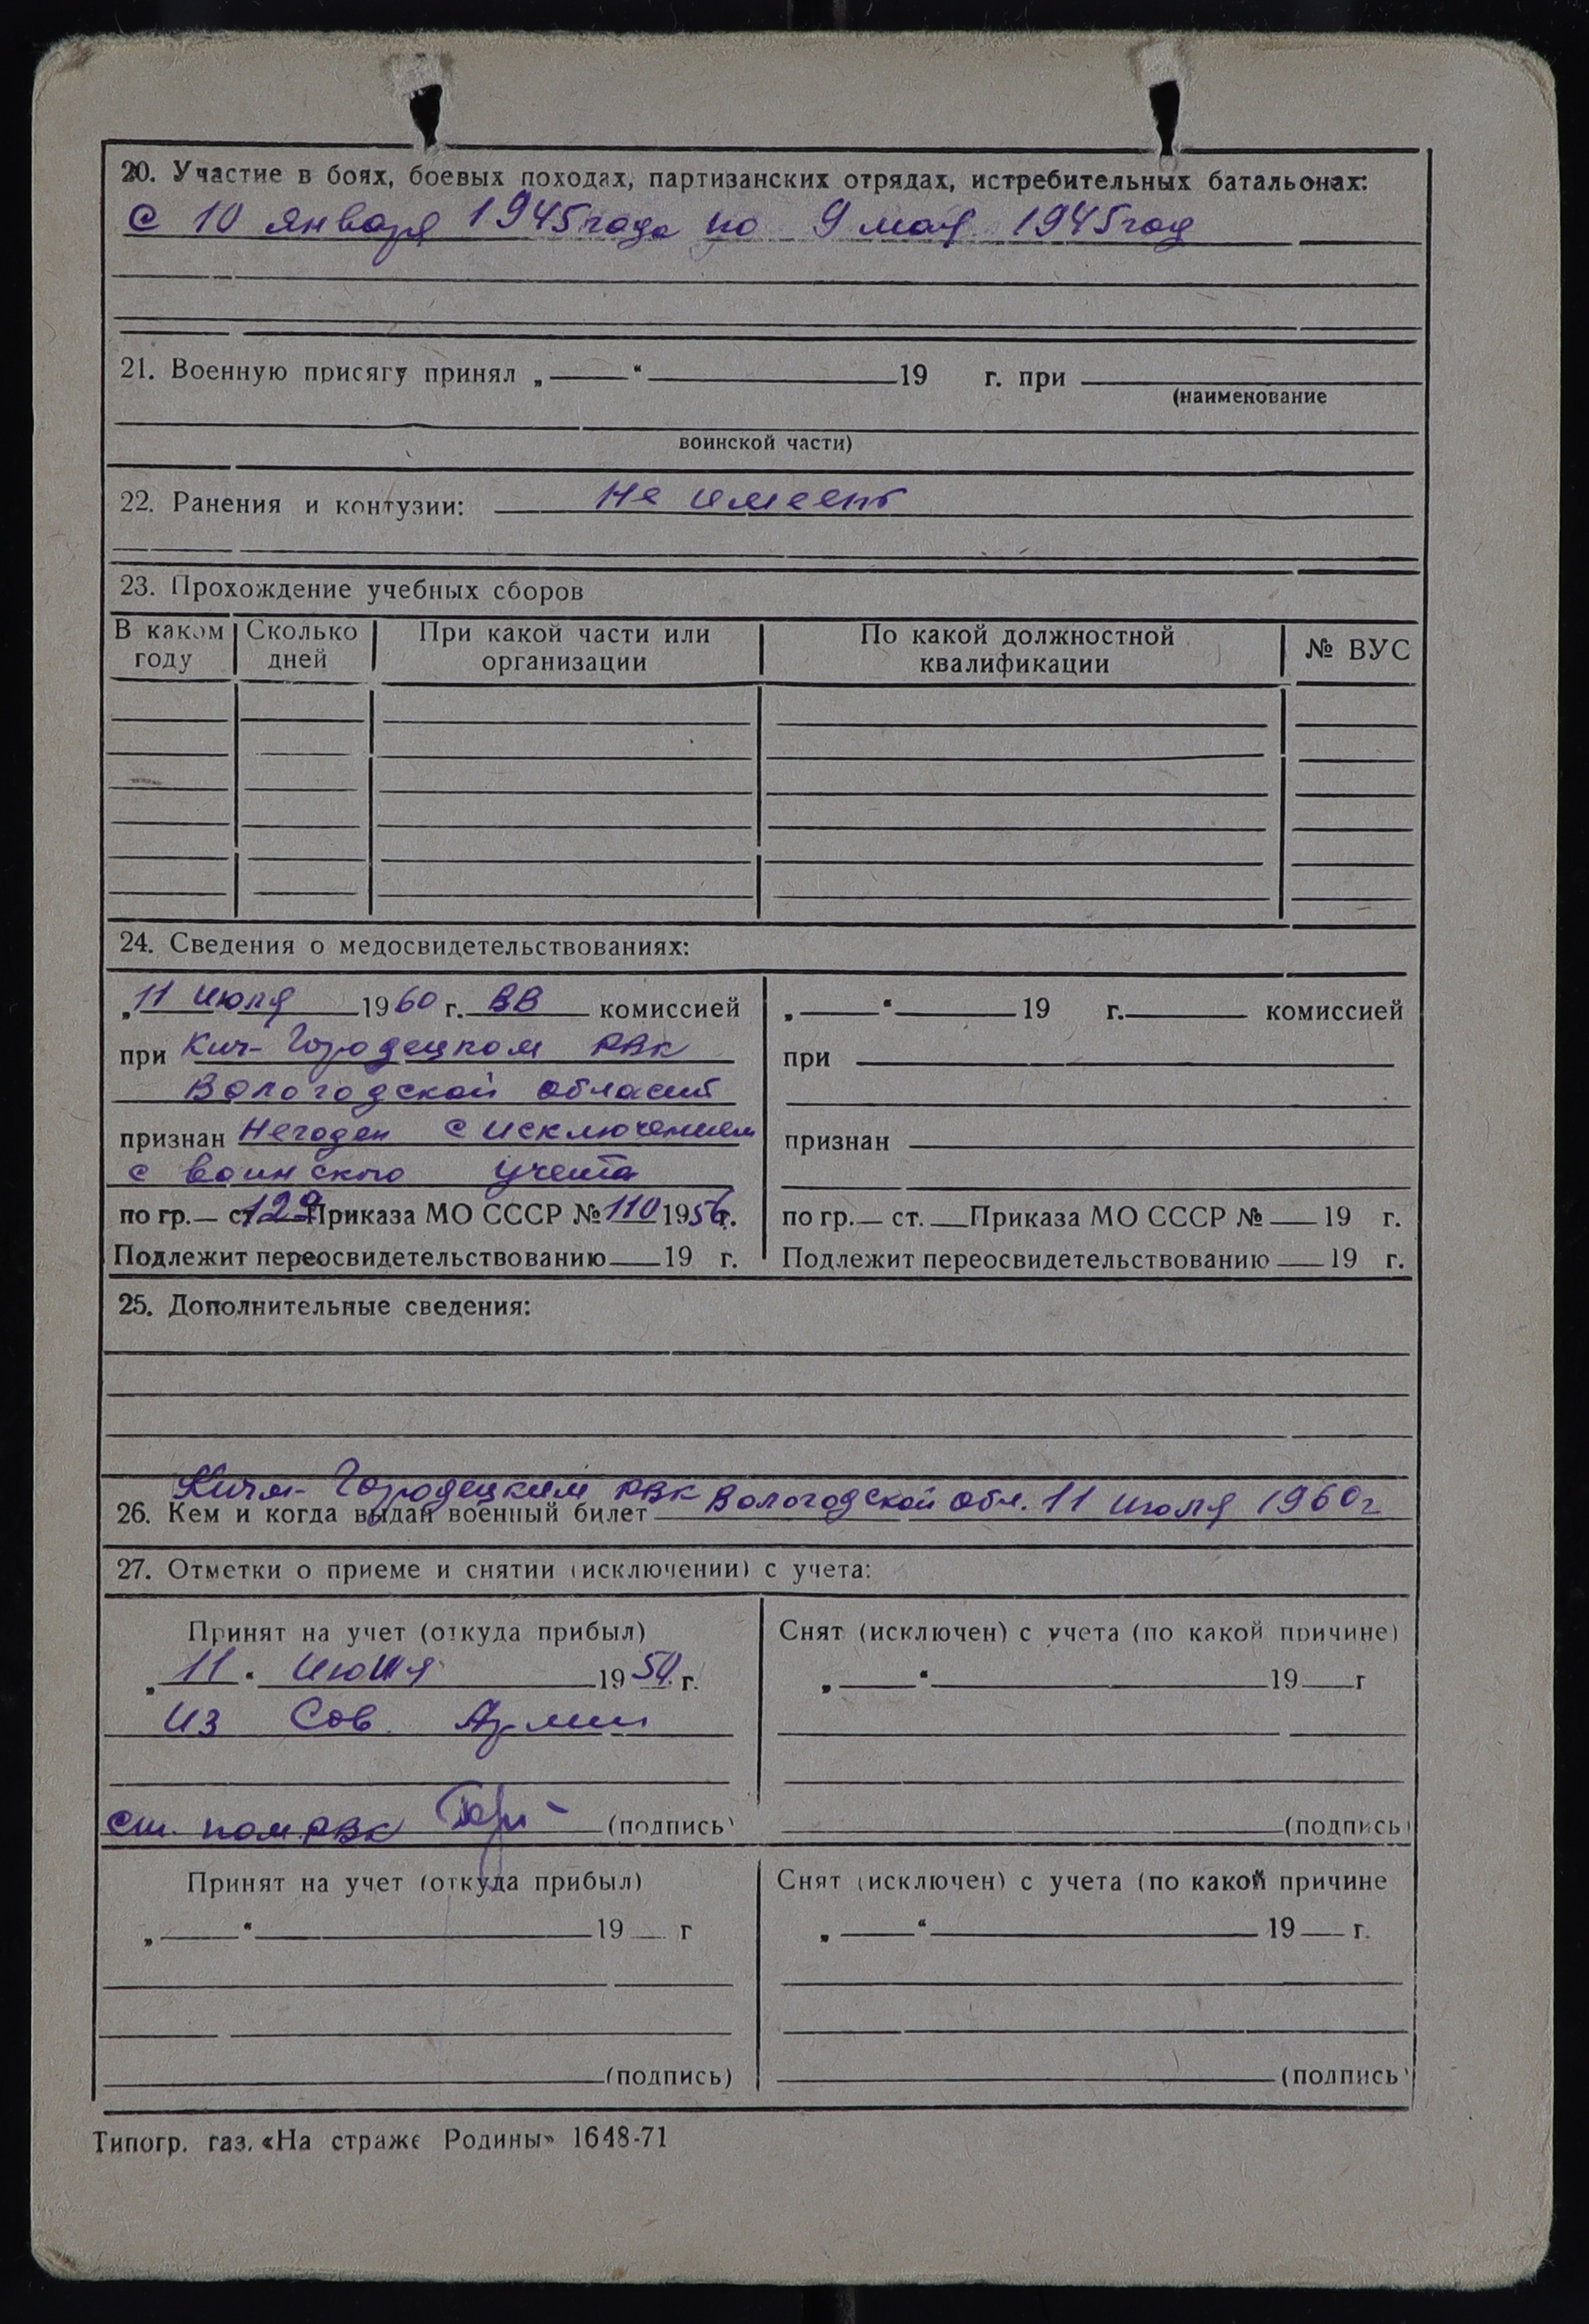 20. Участие в боях, боевых походах, партизанских отрядах, истребительных батальонах:
с 10 января 1945 года по 9 мая 1945 год
21. Военную присягу принял „ “ 19 г. при
(наименование
воинской части)
22. Ранения и контузии: не имеет
23. Прохождение учебных сборов
В каком году Сколько дней При какой части или организации По какой должностной квалификации № ВУС
24. Сведения о медосвидетельствованиях:
„11 июля 1960 г. ВВ комиссией
при Кич-Городецком РВК
Вологодской области
признан Негоден с исключением
с воинского учета
по гр.— ст. 129 Приказа МО СССР № 110 1956 г.
Подлежит переосвидетельствованию 19 г.
„ “ 19 г. комиссией
при
признан
по гр.— ст. Приказа МО СССР № 19 г.
Подлежит переосвидетельствованию 19 г.
25. Дополнительные сведения:
26. Кем и когда выдан военный билет Кичм-Городецким РВК Вологодской обл. 11 июля 1960 г
27. Отметки о приеме и снятии (исключении) с учета:
Принят на учет (откуда прибыл)
„11“ июля 1950 г.
из Сов. Армии
ст. пом РВК (подпись)
Снят (исключен) с учета (по какой причине)
„ “ 19 г
(подпись)
Принят на учет (откуда прибыл)
„ “ 19 г
(подпись)
Снят (исключен) с учета (по какой причине
„ “ 19 г.
(подпись)
Типогр. газ. «На страже Родины» 1648-71